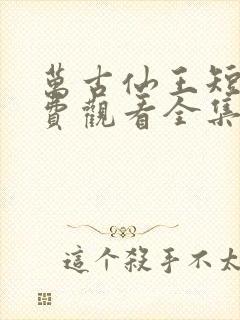 萬古仙王短
費觀看全集
這个殺手不太